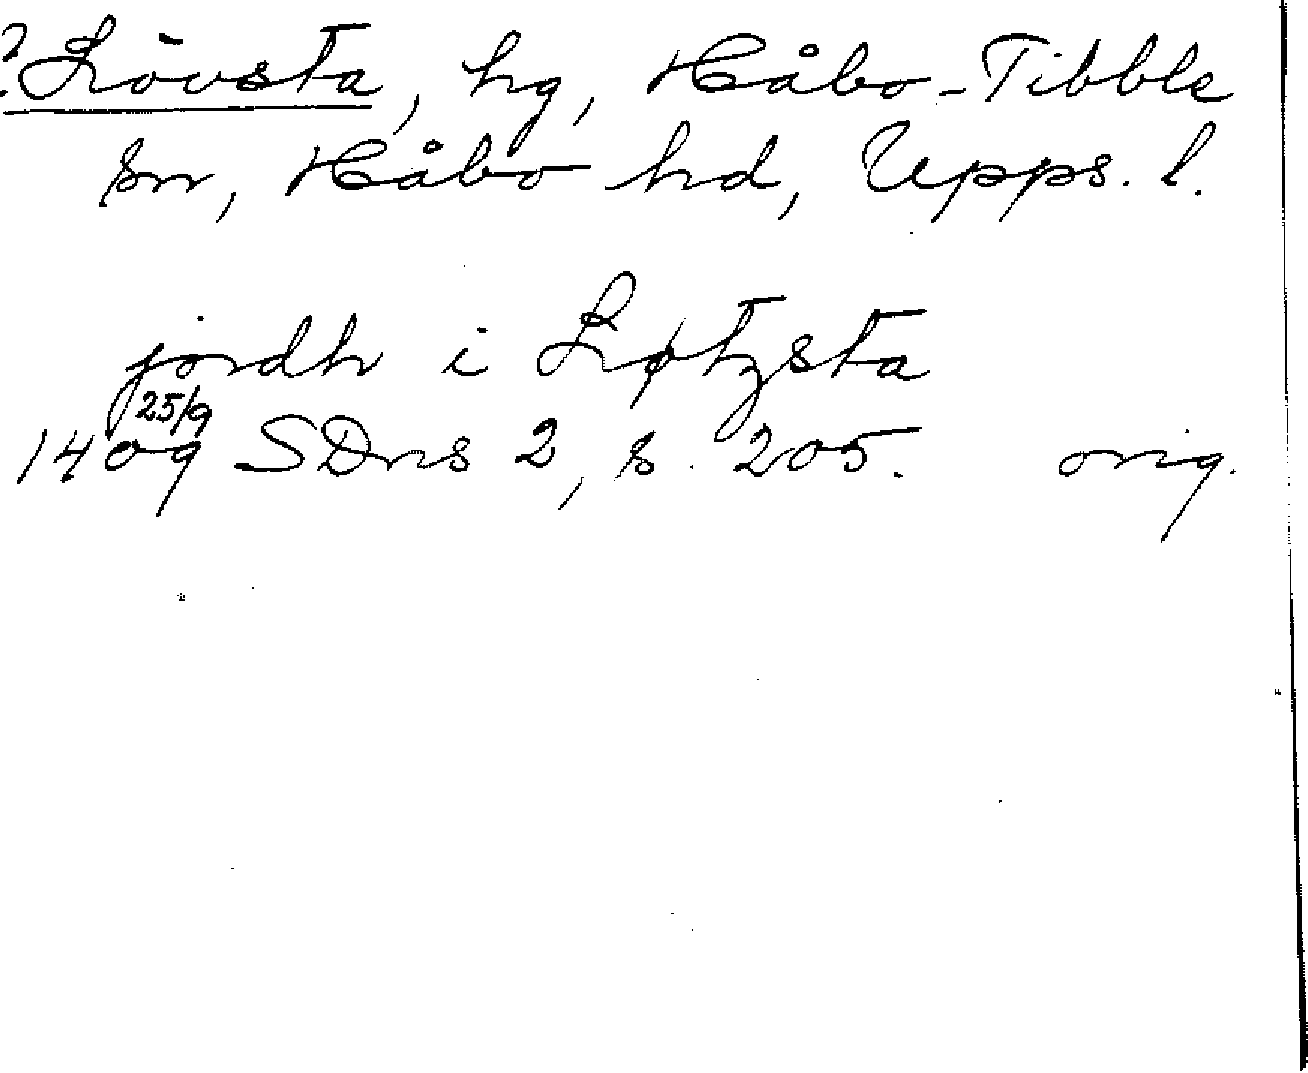 ? Lövsta, hg, Håbo-Tibble
sn, Håbo hd, Upps. l.
jordh i Løtzsta
25/9
1409 SDns 2, s. 205. orig.